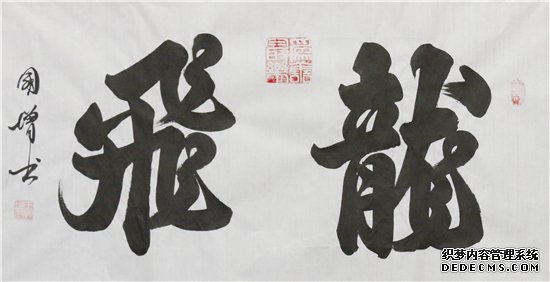 龍飛
國增书
织梦内容管理系统
DEDECMS.COM